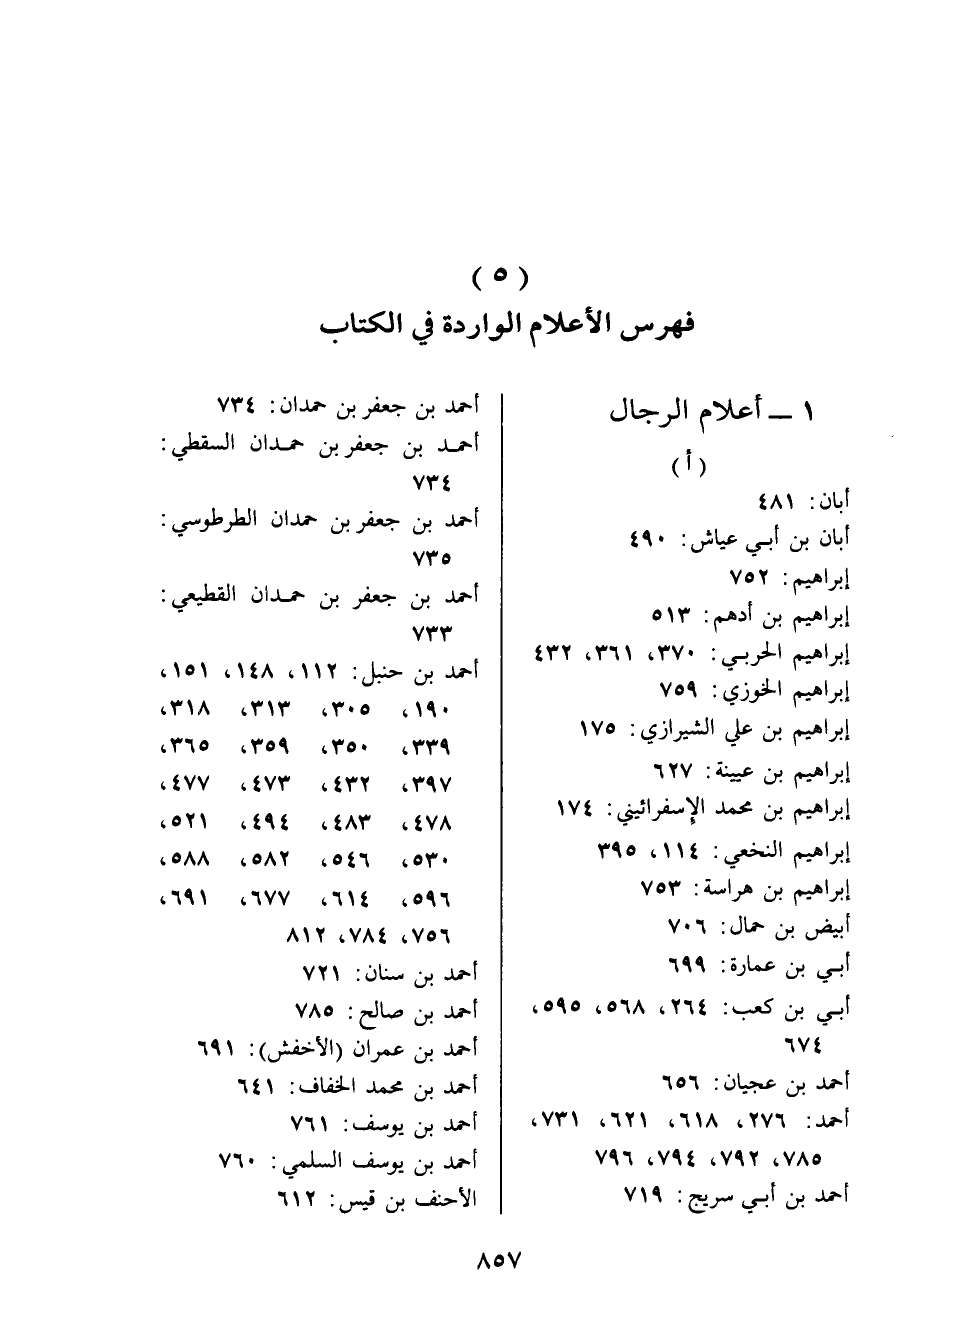 ( ٥ )
فهرس الأعلام الواردة في الكتاب
١ ــ أعلام الرجال
( أ )
أبان: ٤٨١
أبان بن أبي عياش: ٤٩٠
إبراهيم: ٧٥٢
إبراهيم بن أدهم: ٥١٣
إبراهيم الحربي: ٣٧٠، ٣٦١، ٤٣٢
إبراهيم الخوزي: ٧٥٩
إبراهيم بن علي الشيرازي: ١٧٥
إبراهيم بن عيينة: ٦٢٧
إبراهيم بن محمد الإسفرائيني: ١٧٤
إبراهيم النخعي: ١١٤، ٣٩٥
إبراهيم بن هراسة: ٧٥٣
أبيض بن حمال: ٧٠٦
أبي بن عمارة: ٦٩٩
أبي بن كعب: ٢٦٤، ٥٦٨، ٥٩٥،
٦٧٤
أحمد بن عجيان: ٦٥٦
أحمد: ٢٧٦، ٦١٨، ٦٢١، ٧٣١،
٧٨٥، ٧٩٢، ٧٩٤، ٧٩٦
أحمد بن أبي سريج: ٧١٩
أحمد بن جعفر بن حمدان: ٧٣٤
أحمد بن جعفر بن حمدان السقطي:
٧٣٤
أحمد بن جعفر بن حمدان الطرطوسي:
٧٣٥
أحمد بن جعفر بن حمدان القطيعي:
٧٣٣
أحمد بن حنبل: ١١٢، ١٤٨، ١٥١،
١٩٠، ٣٠٥، ٣١٣، ٣١٨،
٣٣٩، ٣٥٠، ٣٥٩، ٣٦٥،
٣٩٧، ٤٣٢، ٤٧٣، ٤٧٧،
٤٧٨، ٤٨٣، ٤٩٤، ٥٢١،
٥٣٠، ٥٤٦، ٥٨٢، ٥٨٨،
٥٩٦، ٦١٤، ٦٧٧، ٦٩١،
٧٥٦، ٧٨٤، ٨١٢
أحمد بن سنان: ٧٢١
أحمد بن صالح: ٧٨٥
أحمد بن عمران (الأخفش): ٦٩١
أحمد بن محمد الخفاف: ٦٤١
أحمد بن يوسف: ٧٦١
أحمد بن يوسف السلمي: ٧٦٠
الأحنف بن قيس: ٦١٢
٨٥٧